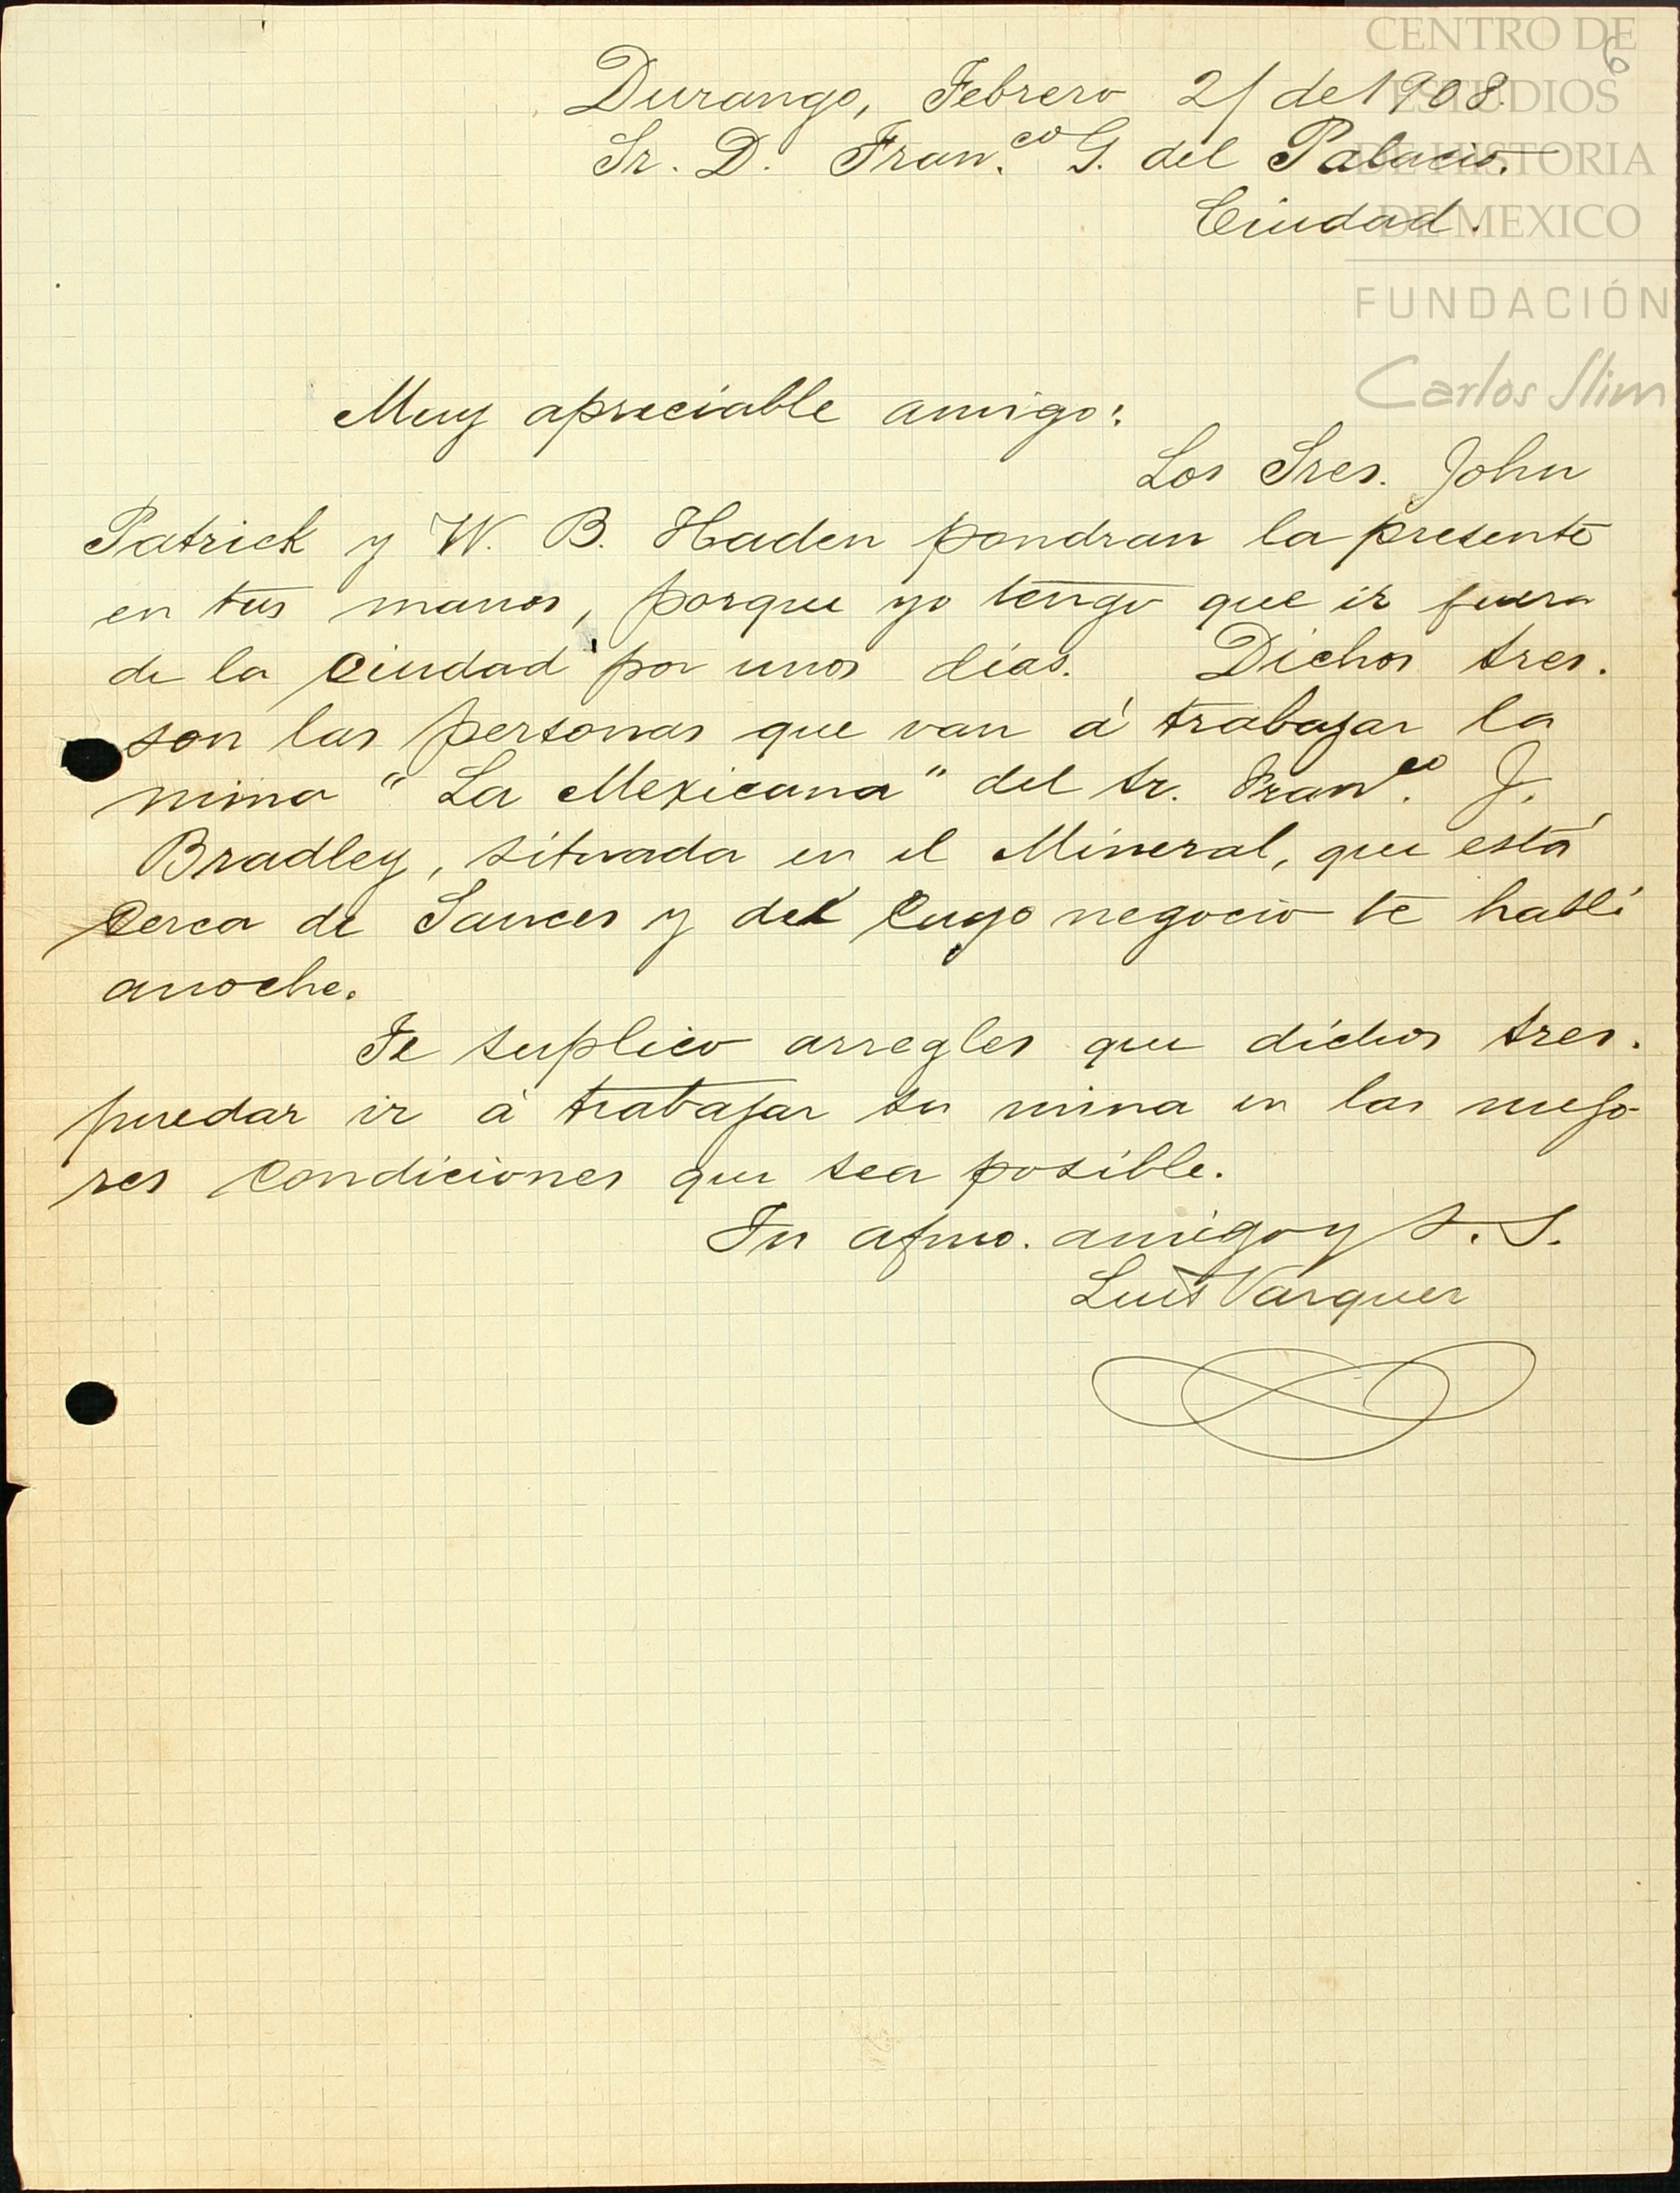 CENTRO DE
ESTUDIOS
DE HISTORIA
DE MEXICO
FUNDACIÓN
Carlos Slim
6
Durango, Febrero 21 de 1908.
Sr. D. Fran.co G. del Palacio.
Ciudad.
Muy apreciable amigo:
Los Sres. John
Patrick y W. B. Haden pondran la presente
en tus manos, porque yo tengo que ir fuera
de la ciudad por unos días. Dichos sres.
son las personas que van á trabajar la
mina "La Mexicana" del sr. Fran.co J.
Bradley, situada en el Mineral, que está
cerca de Sauces y del cuyo negocio te hablé
anoche.
Te suplico arregles que dichos sres.
puedar ir á trabajar su mina en las mejo-
res condiciones que sea posible.
Tu afmo. amigo y S. S.
Luis Vasquez